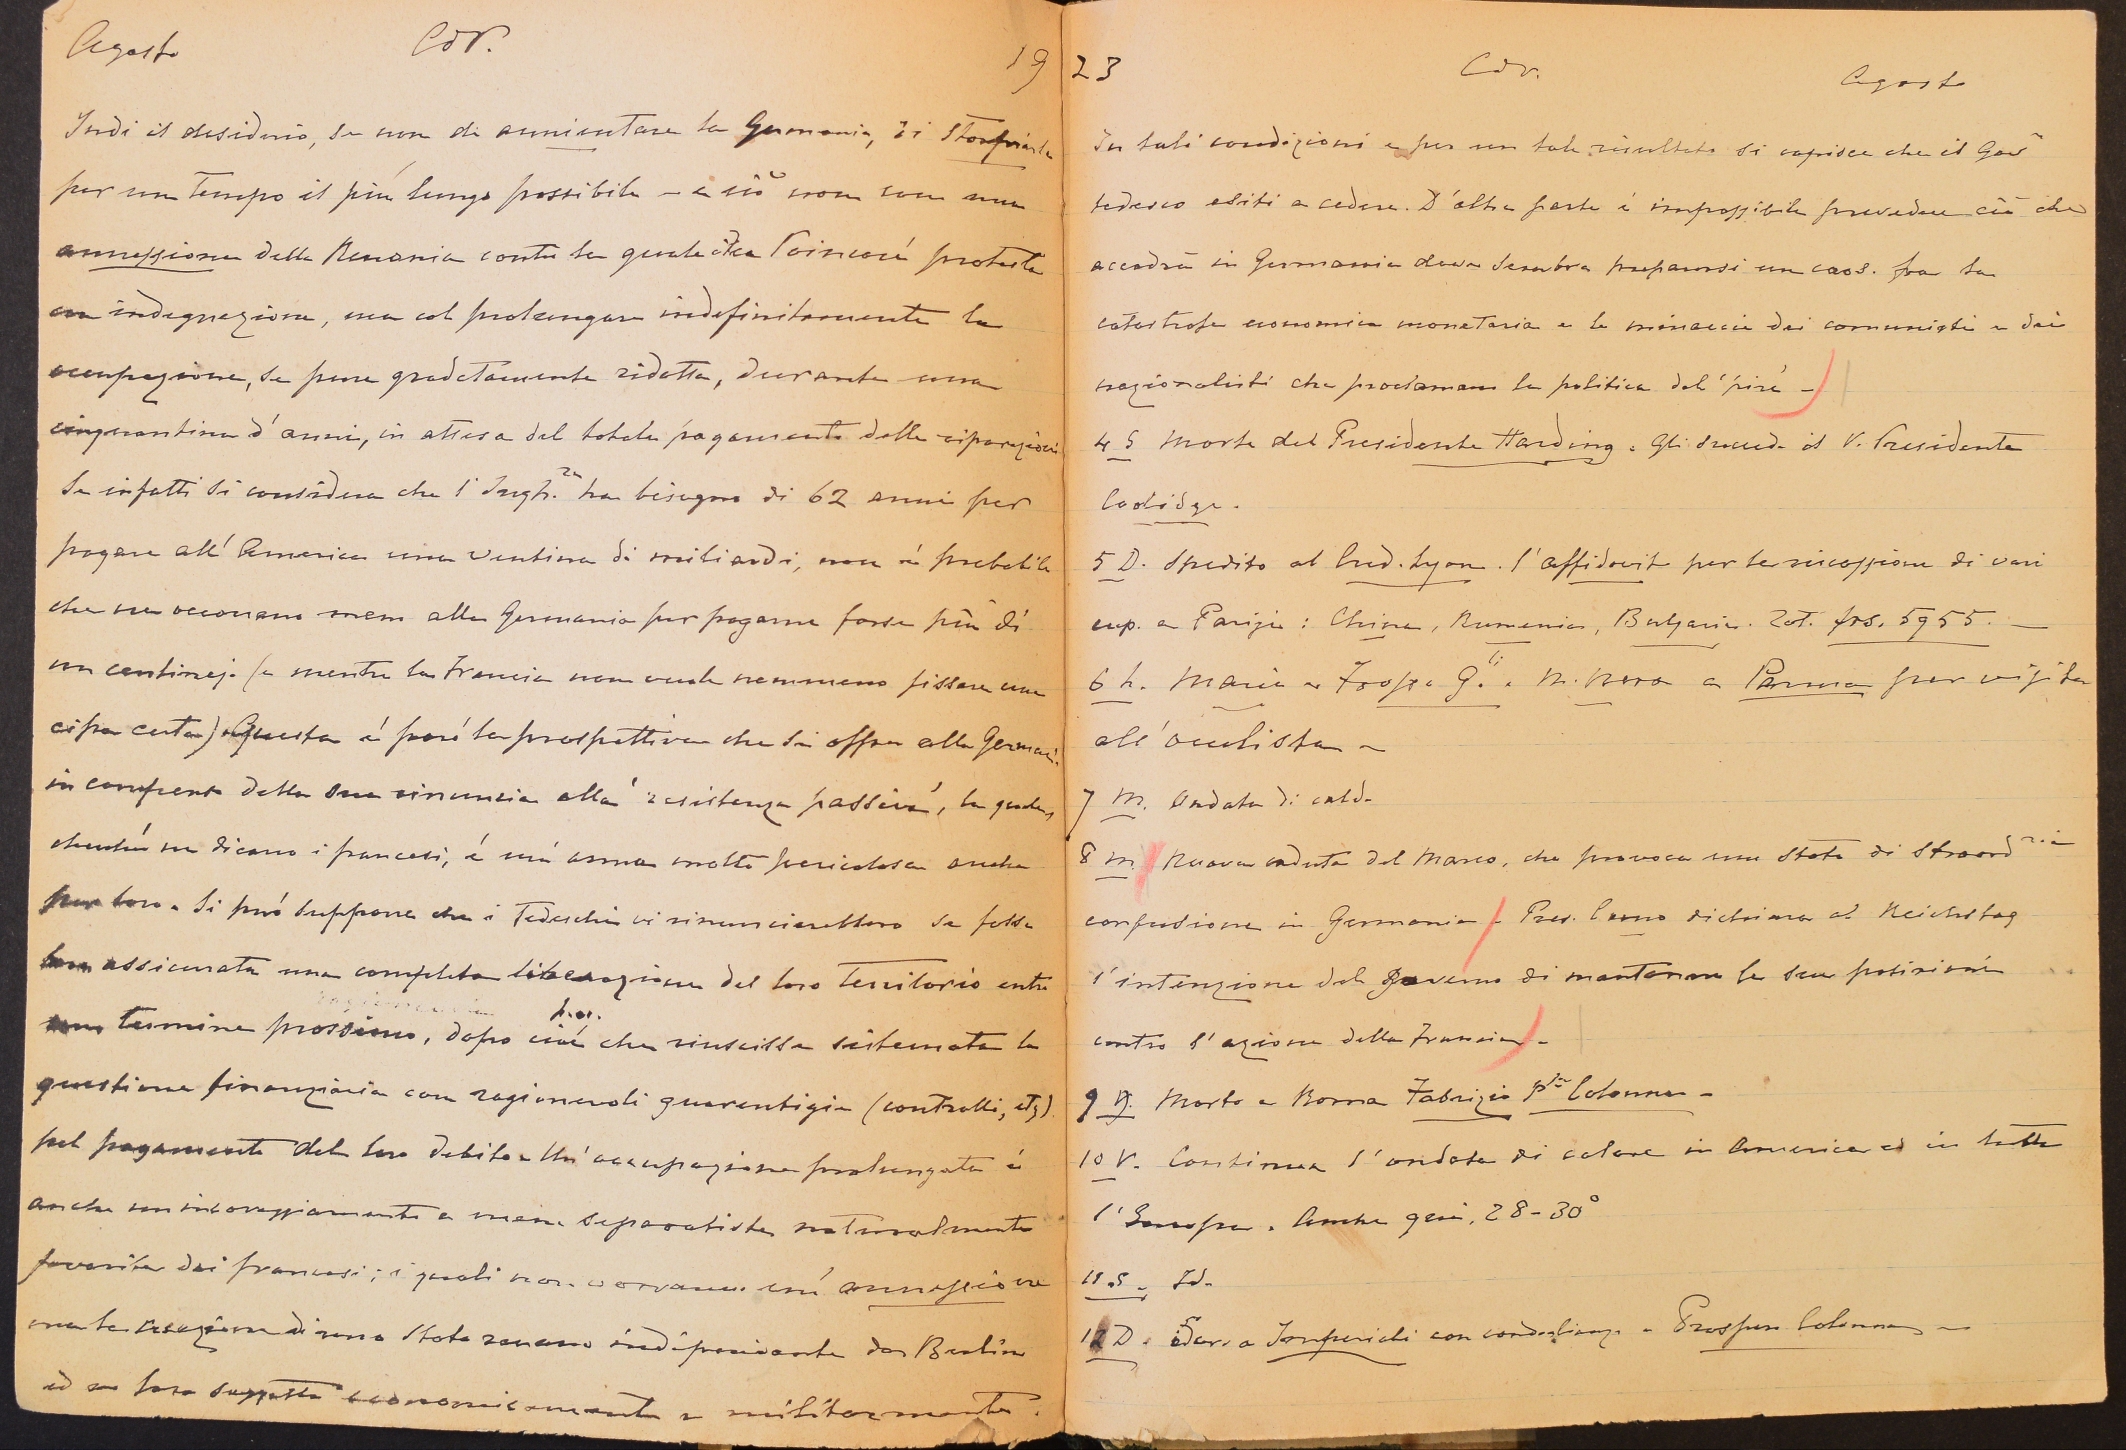 Agosto CdV. 19
Indi il desiderio, se non di annientare la Germania, di storpiarla
per un tempo il più lungo possibile – e ciò non con una
annessione della Renania contro la quale Poincaré protesta
con indegnazione, ma col prolungare indefinitamente la
occupazione, se pure gradatamente ridotta, durante una
cinquantina d'anni, in attesa del totale pagamento delle riparazioni
Se infatti si considera che l'Ingh.ra ha bisogno di 62 anni per
pagare all'America una ventina di miliardi, non è probabile
che ne occorrano meno alla Germania per pagarne forse più di
un centinajo (e mentre la Francia non vuole nemmeno fissare una
cifra certa). Questa è però la prospettiva che si offre alla Germania
in compenso della sua rinuncia alla 'resistenza passiva', la quale,
checché ne dicano i francesi, è un'arma molto pericolosa anche
per loro. Si può supporre che i Tedeschi vi rinuncierebbero se fosse
loro assicurata una completa liberazione del loro territorio entro
un termine prossimo, dopo cioè che riuscisse sistemata la
p.es.
questione finanziaria con ragionevoli guarentigie (controlli, etz)
pel pagamento del loro debito. Un'occupazione prolungata è
anche un incoraggiamento a mene separatiste naturalmente
favorite dai francesi; i quali non vorranno un'annessione
ma la creazione di uno Stato renano indipendente da Berlino
ed a loro soggetto economicamente e militarmente.
23 CdV. Agosto
In tali condizioni e per un tale risultato si capisce che il Gov°
tedesco esiti a cedere. D'altra parte è impossibile prevedere ciò che
accadrà in Germania dove sembra prepararsi un caos. fra la
catastrofe economica monetaria e le minaccie dei comunisti e dei
nazionalisti che proclamano la politica del 'pire' –
4 S Morte del Presidente Harding. Gli succede il V. Presidente
Coolidge.
5 D. Spedito al Cred. Lyon. l'affidavit per la riscossione di vari
cup. a Parigi: China, Rumenia, Bulgaria. Tot. frs. 5955. –
6 L. Maria e Fosca G.li e M. Nora a Parma per visita
all'oculista –
7 M. Ondata di caldo
8 M. Nuova caduta del Marco, che provoca uno stato di straord.ria
confusione in Germania – Pres. Cuno dichiara al Reichstag
l'intenzione del governo di mantenere la sua posizione
contro l'azione della Francia –
9 G. Morto a Roma Fabrizio P.pe Colonna –
10 V. Continua l'ondata di calore in America ed in tutta
l'Europa. Anche qui, 28-30°
11 S. Id.
12 D. a Imperiali con condoglianze a Prospero Colonna –